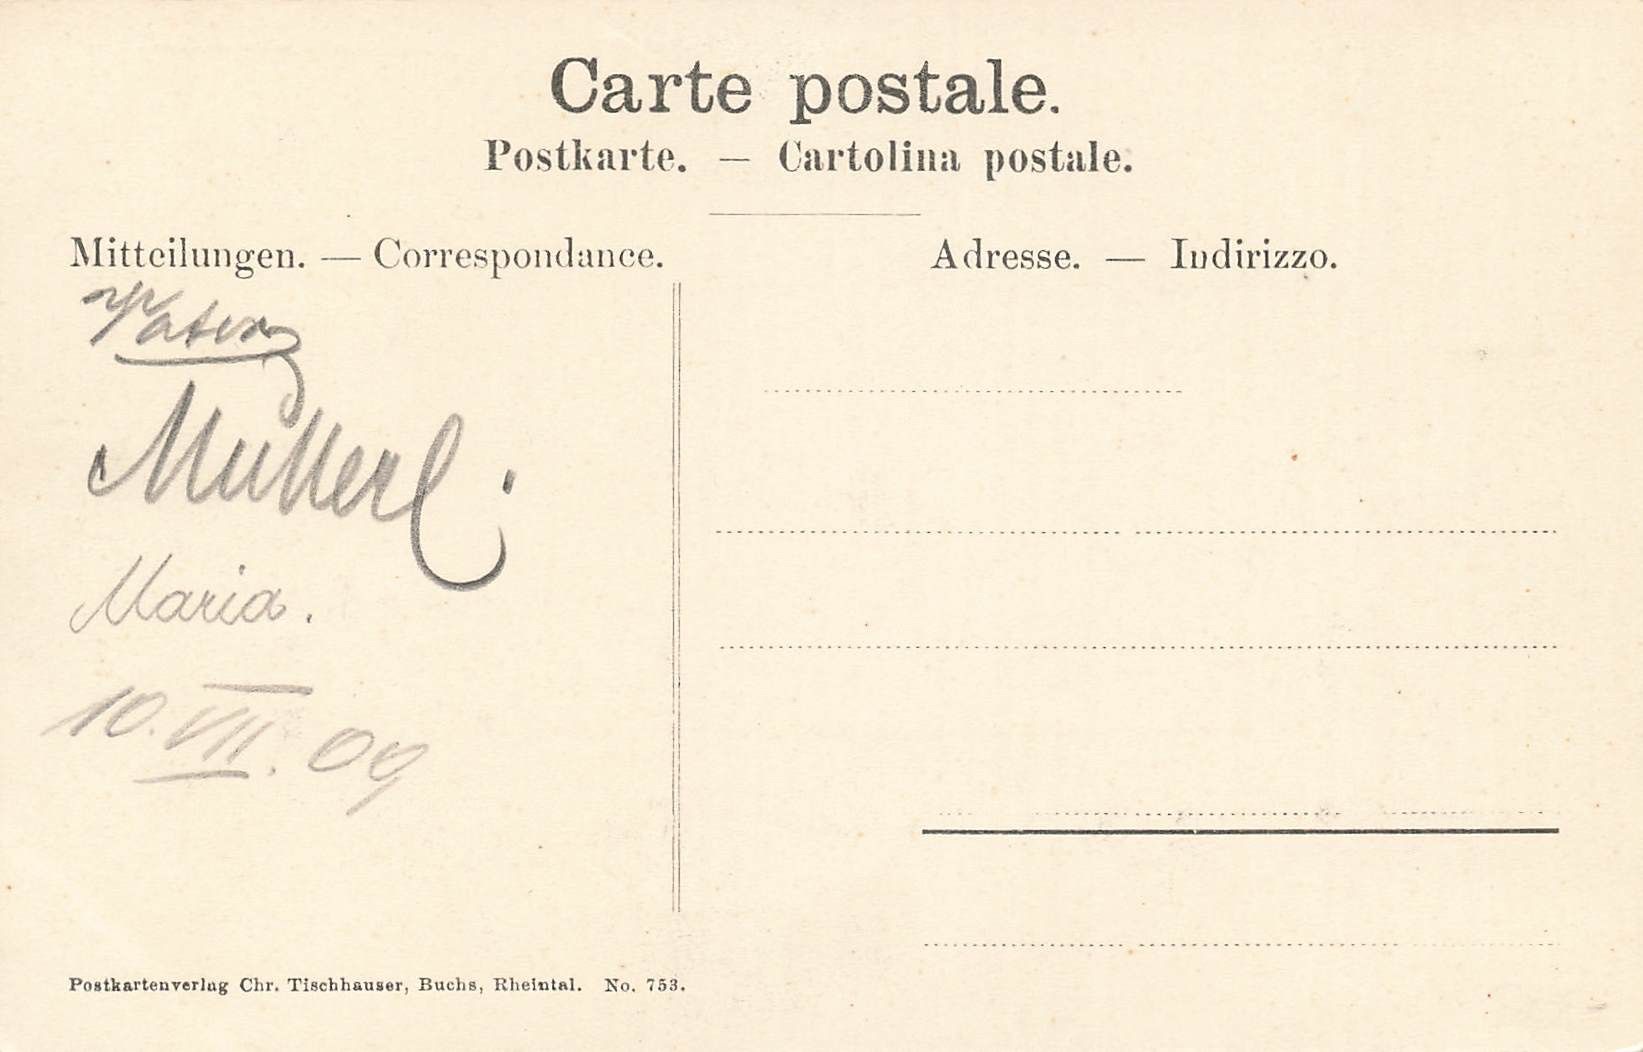 Carte postale.
Postkarte. — Cartolina postale.
Mitteilungen. — Correspondance.
Adresse. — Indirizzo.
Vater
Mutterl.
Maria.
10. VII. 09
Postkartenverlag Chr. Tischhauser, Buchs, Rheintal. No. 753.